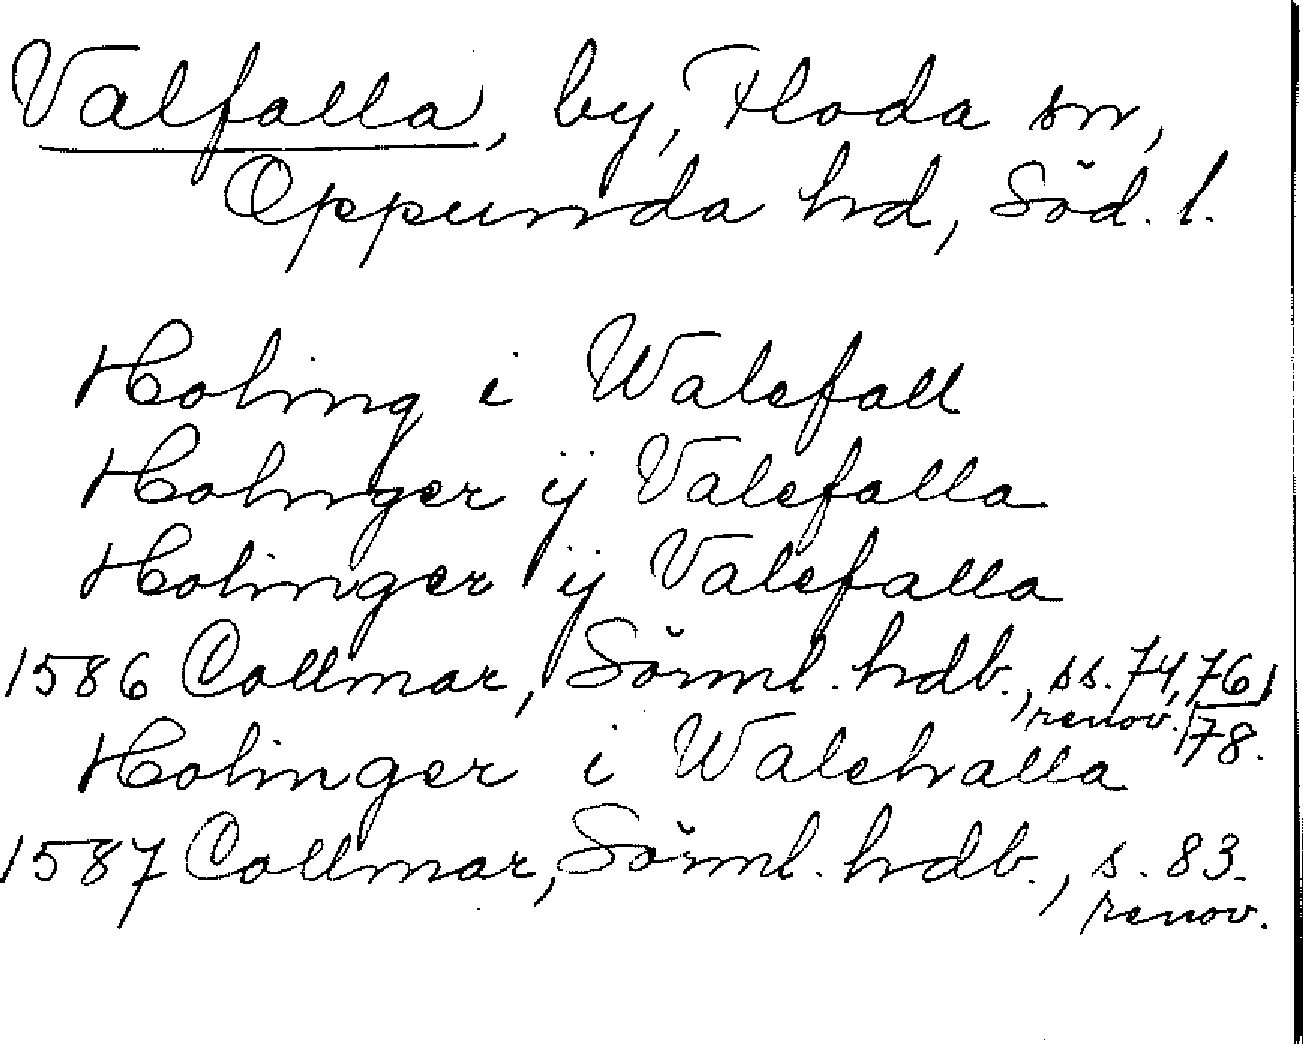 Valfalla, by, Floda sn,
Oppunda hd, Söd. l.
Holing i Walefall
Holinger ÿ Valefalla
Holinger ÿ Valefalla
1586 Collmar, Sörml. hdb., ss. 74, 76,
renov. 78.
Holinger i Walehalla
1587 Collmar, Sörml. hdb., s. 83.
renov.